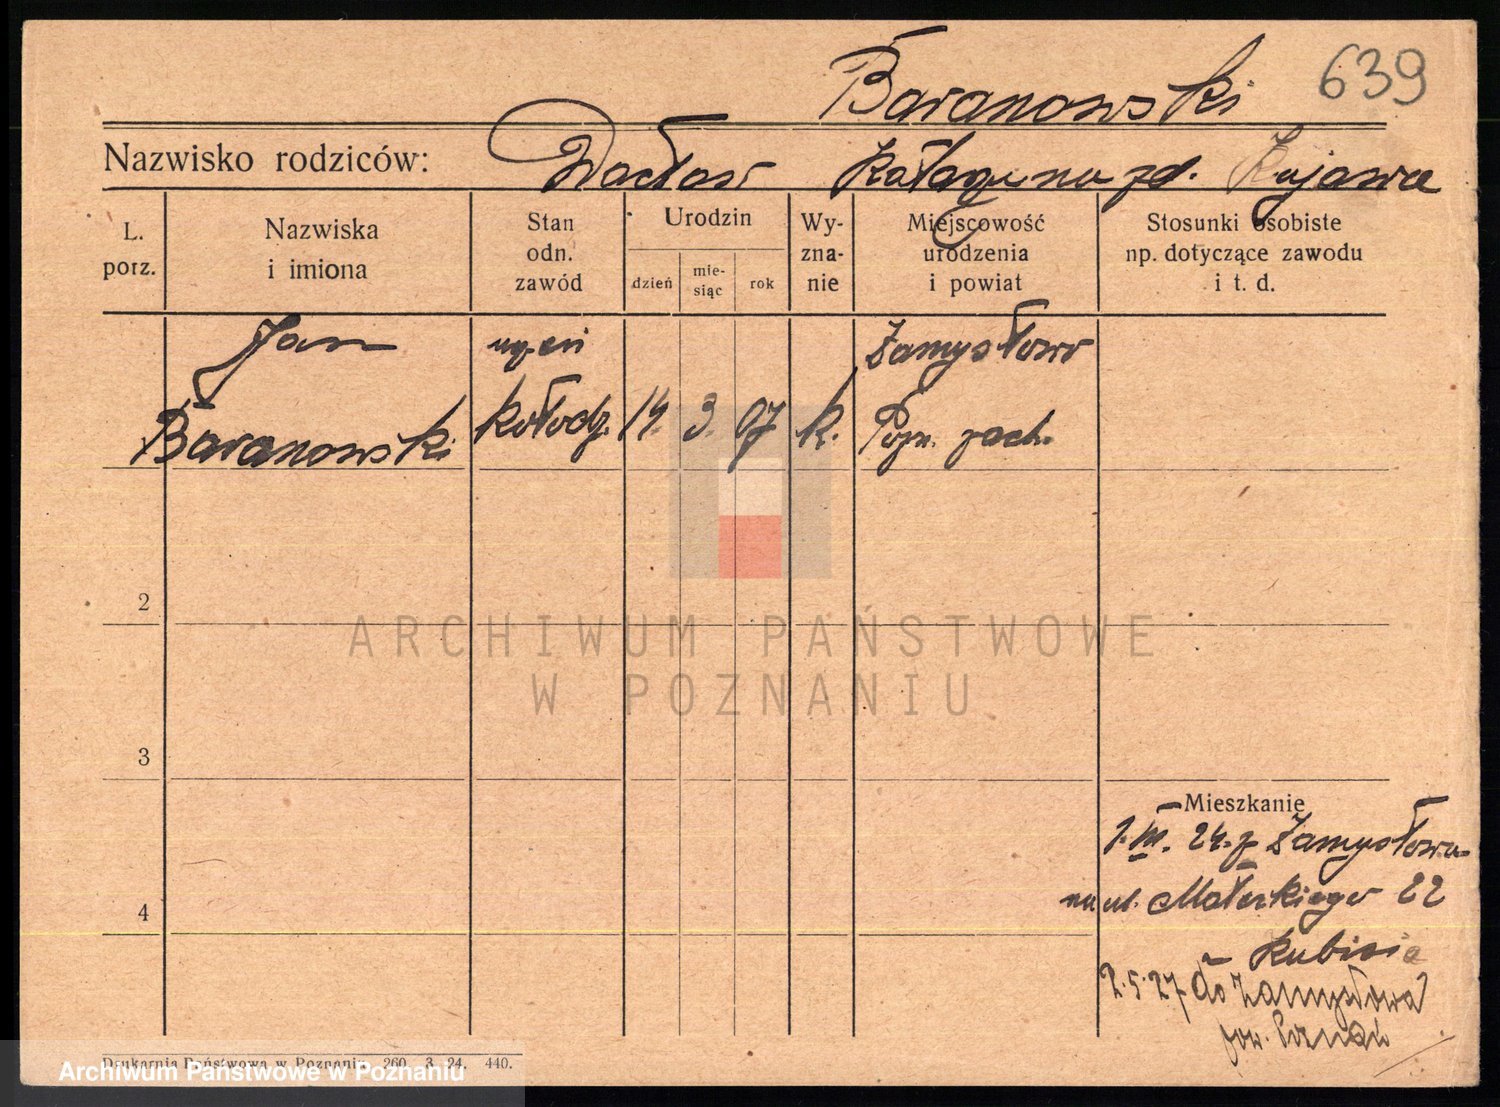 639
Baranowski
Nazwisko rodziców: Wacław Katarzyna zd. Kujawa
L. porz.
Nazwiska i imiona
Stan odn. zawód
Urodzin
dzień
mie-siąc
rok
Wy-zna-nie
Miejscowość urodzenia i powiat
Stosunki osobiste np. dotyczące zawodu i t. d.
Jan
Baranowski
uczeń
kołodz.
14. 3. 07
k.
Zamysłowo
Pozn. zach.
2
3
4
Mieszkanie
1. III. 24. z Zamysłowa
na ul. Małeckiego 22
Kubisia
2.5.27 do Zamysłowa
pow. Poznań
ARCHIWUM PAŃSTWOWE
W POZNANIU
Drukarnia Państwowa w Poznaniu 260. 3. 24. 440.
Archiwum Państwowe w Poznaniu